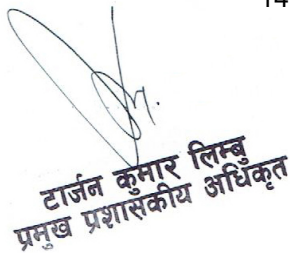 14
टार्जन कुमार लिम्बु
प्रमुख प्रशासकीय अधिकृत